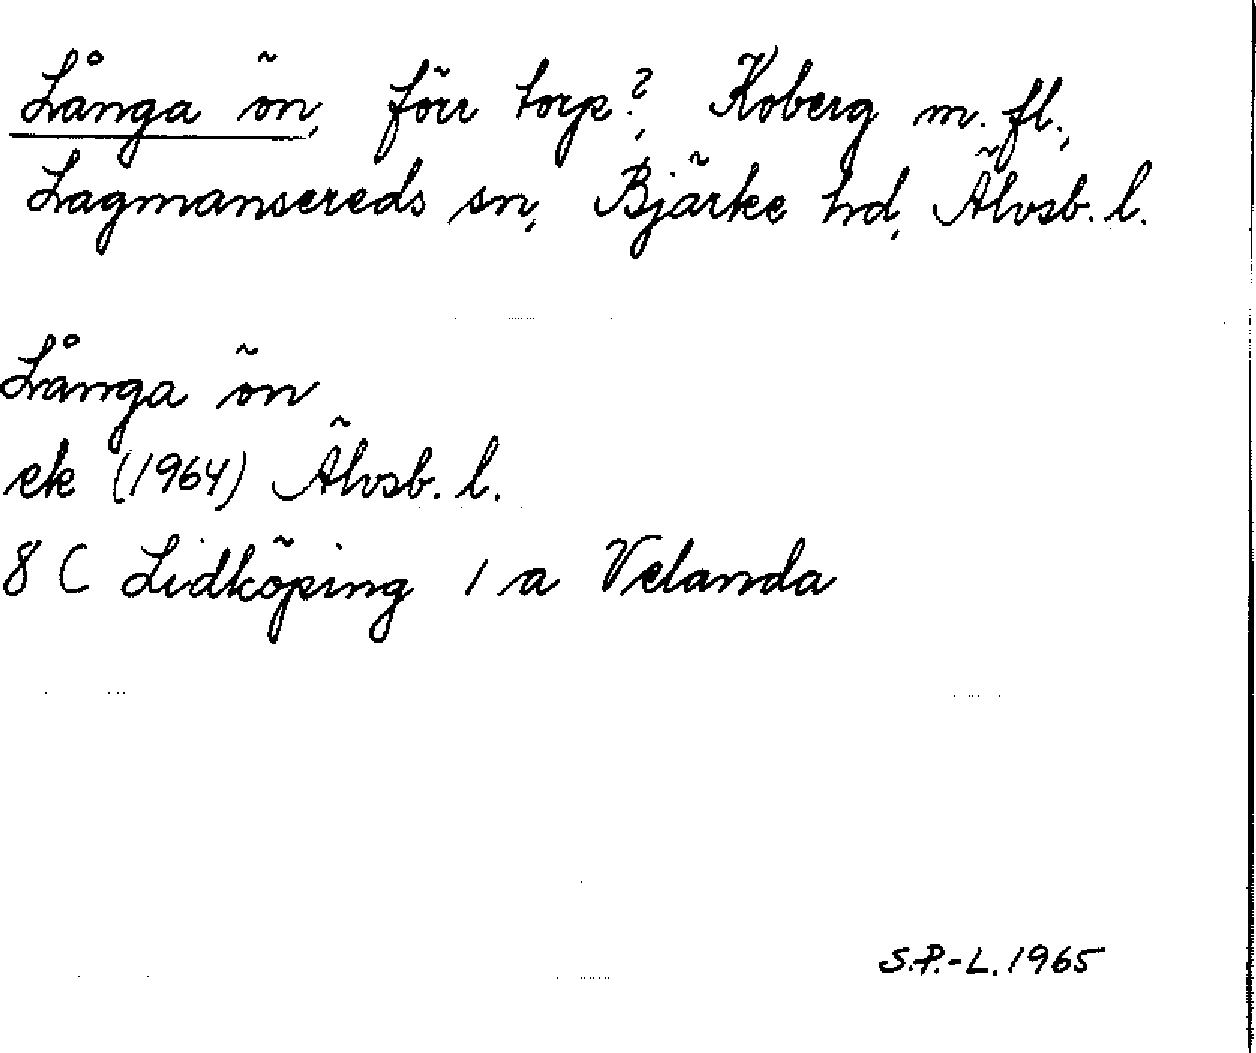 Långa ön, förr torp?, Koberg m. fl.,
Lagmansereds sn, Bjärke hd, Älvsb. l.
Långa ön
ek (1964) Älvsb. l.
8 C Lidköping 1 a Velanda
S.P.-L. 1965